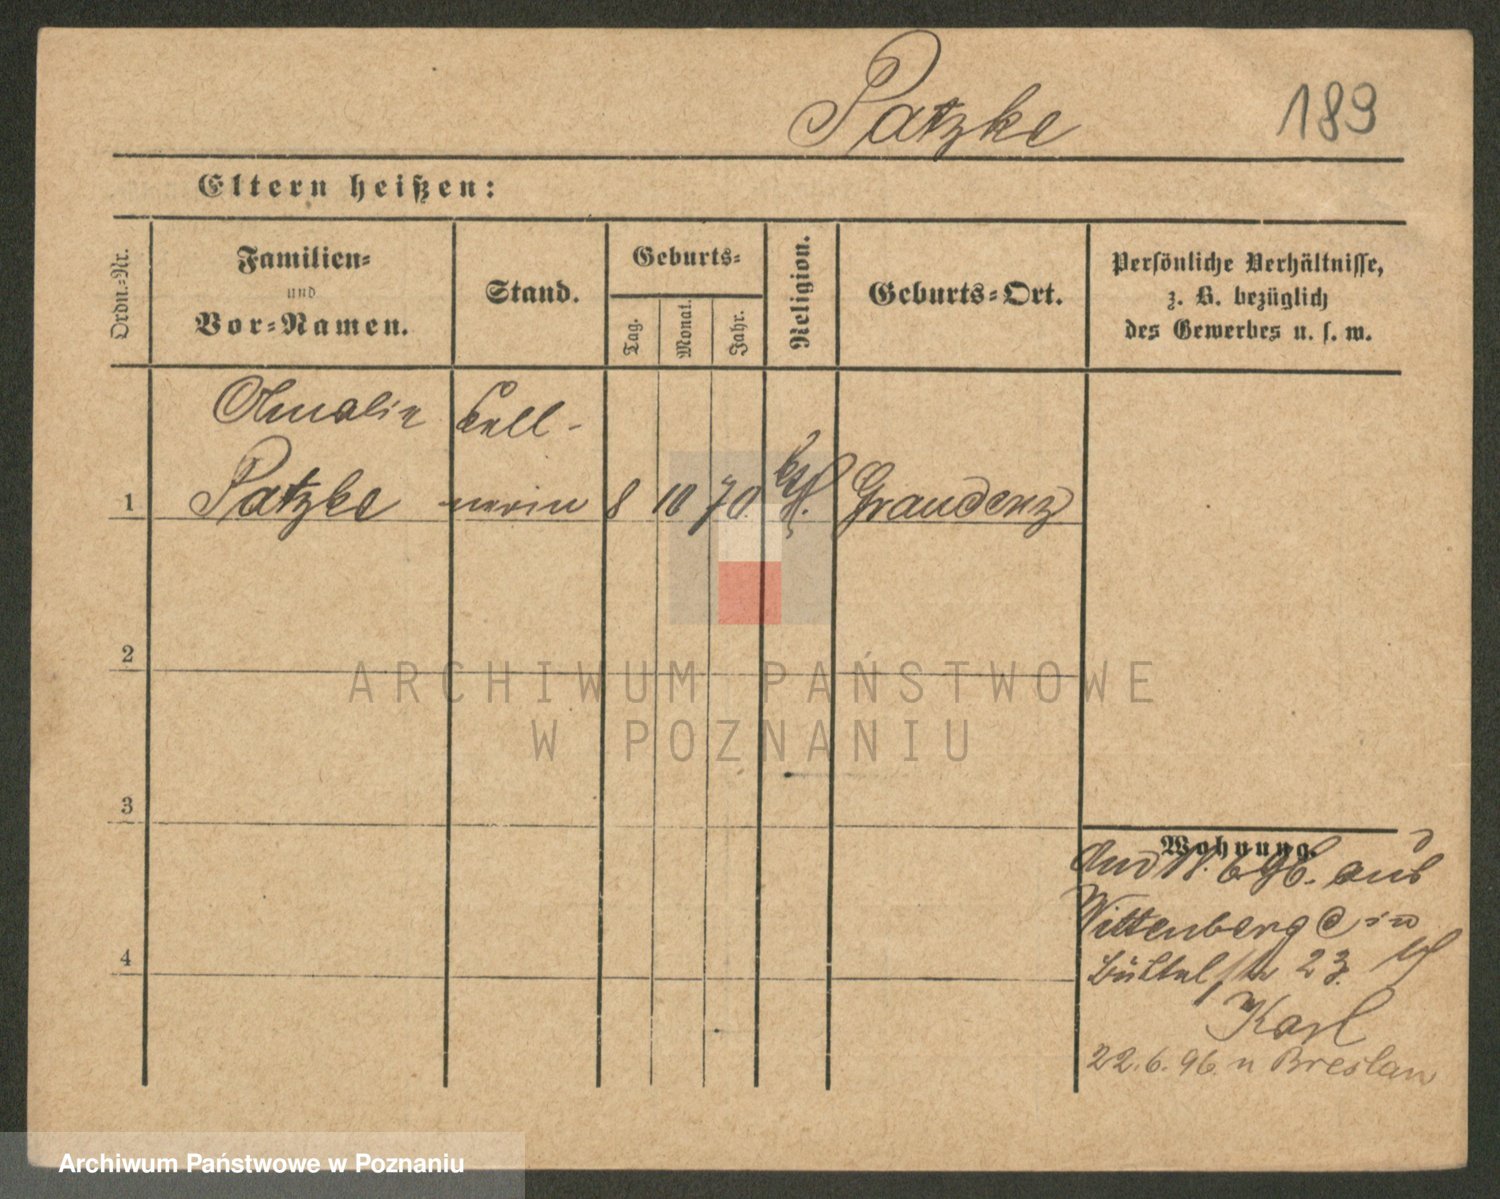 Patzke
189
Eltern heißen:
Ordn.-Nr.
Familien-
und
Vor-Namen.
Stand.
Geburts-
Tag.
Monat.
Jahr.
Religion.
Geburts-Ort.
Persönliche Verhältnisse,
z. B. bezüglich
des Gewerbes u. s. w.
Amalie Kell-
1 Patzke nerin 8 10 70. Graudenz
2
3
4
Wohnung.
11. 6 96. aus
Wittenberg in
Büttelstr 23.
Karl
22. 6. 96. n Breslau
ARCHIWUM PAŃSTWOWE
W POZNANIU
Archiwum Państwowe w Poznaniu